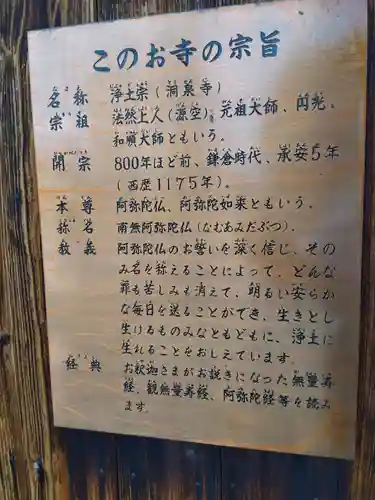 このお寺の宗旨
名称 浄土宗(洞泉寺)
宗祖 法然上人(源空)元祖大師、円光、
和順大師ともいう。
開宗 800年ほど前、鎌倉時代、承安5年
(西歴1175年)。
本尊 阿弥陀仏、阿弥陀如来ともいう。
称名 南無阿弥陀仏(なむあみだぶつ)。
教義 阿弥陀仏のお誓いを深く信じ、その
み名を称えることによって、どんな
罪も苦しみも消えて、明るい安らか
な毎日を送ることができ、生きとし
生けるものみなともどもに、浄土に
生れることをおしえています。
経典 お釈迦さまがお説きになった無量寿
経、観無量寿経、阿弥陀経等を読み
ます。